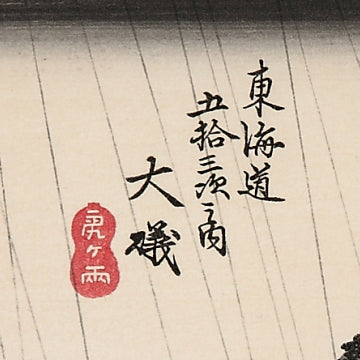 東海道
五拾三次之内
大磯
虎ヶ雨